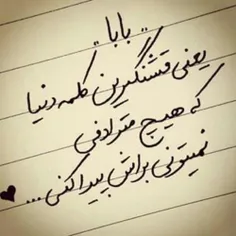 "بابا"
یعنی قشنگترین کلمه دنیا
که هیچ مترادفی
نمیتونی براش پیدا کنی...